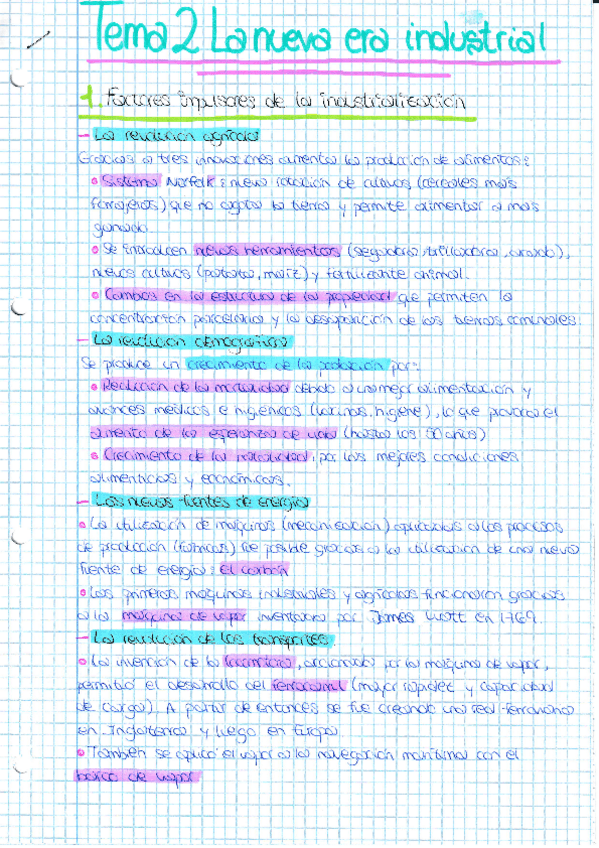 Tema 2 La nueva era industrial
1. Factores impulsores de la industrialización
- La revolución agrícola
Gracias a tres innovaciones aumenta la producción de alimentos:
• Sistema Norfolk: nueva rotación de cultivos (cereales más
forrajeros) que no agota la tierra y permite alimentar a más
ganado.
• Se introducen nuevas herramientas (segadora, trilladora, arado),
nuevos cultivos (patata, maíz) y fertilizante animal.
• Cambios en la estructura de la propiedad que permiten la
concentración parcelaria y la desaparición de las tierras comunales.
- La revolución demográfica
Se produce un crecimiento de la población por:
• Reducción de la mortalidad debido a una mejor alimentación y
avances médicos e higiénicos (vacunas, higiene), lo que provoca el
aumento de la esperanza de vida (hasta los 50 años)
• Crecimiento de la natalidad, por las mejores condiciones
alimenticias y económicas.
- Las nuevas fuentes de energía
• La utilización de máquinas (mecanización) aplicadas a los procesos
de producción (fábricas) fue posible gracias a la utilización de una nueva
fuente de energía: el carbón
• Las primeras máquinas industriales y agrícolas funcionaron gracias
a la máquina de vapor inventada por James Watt en 1769.
- La revolución de los transportes
• La invención de la locomotora, accionada por la máquina de vapor,
permitió el desarrollo del ferrocarril (mayor rapidez y capacidad
de carga). A partir de entonces se fue creando una red ferroviaria
en Inglaterra y luego en Europa.
• También se aplicó el vapor a la navegación marítima con el
barco de vapor